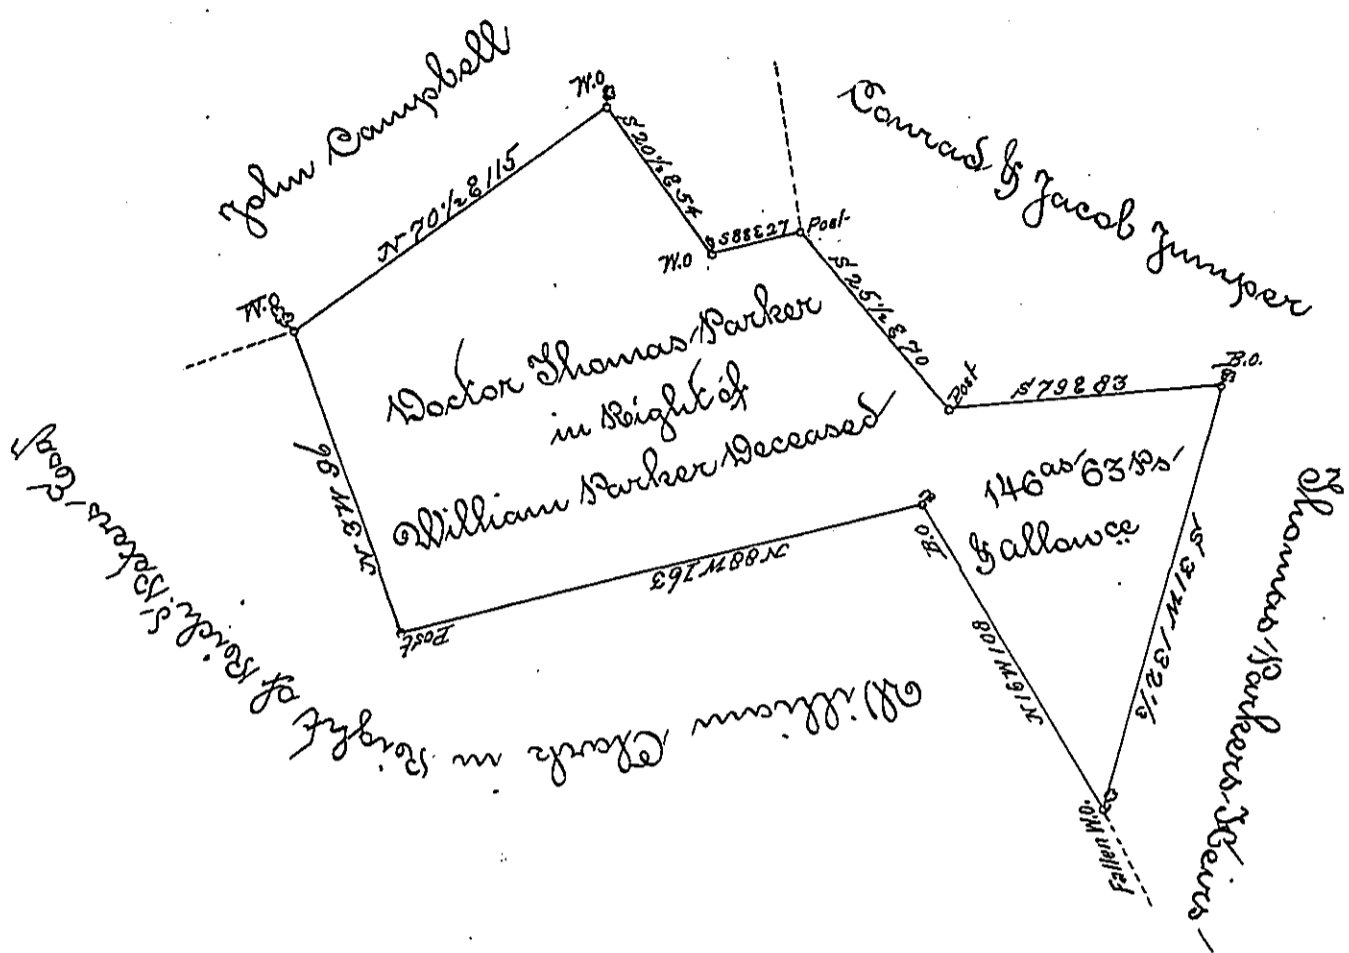 John Campbell
W.O
N 70 1/2 E 115
S 20 1/2 E 54
W.O
S 88 E 27
Post
Conrad & Jacob Jumper
S 25 1/2 E 70
Post
S 79 E 83
B.O.
W.O
Doctor Thomas Parker
in Right of
William Parker Deceased
146 as 63 Ps
& allowce
N 3 W 96
Post
N 88 W 163
B.O
N 16 W 108
S 31 W 132 1/3
Fallen W.O.
Thomas Parkers Heirs
William Clark in Right of Richd. Peters Esqr